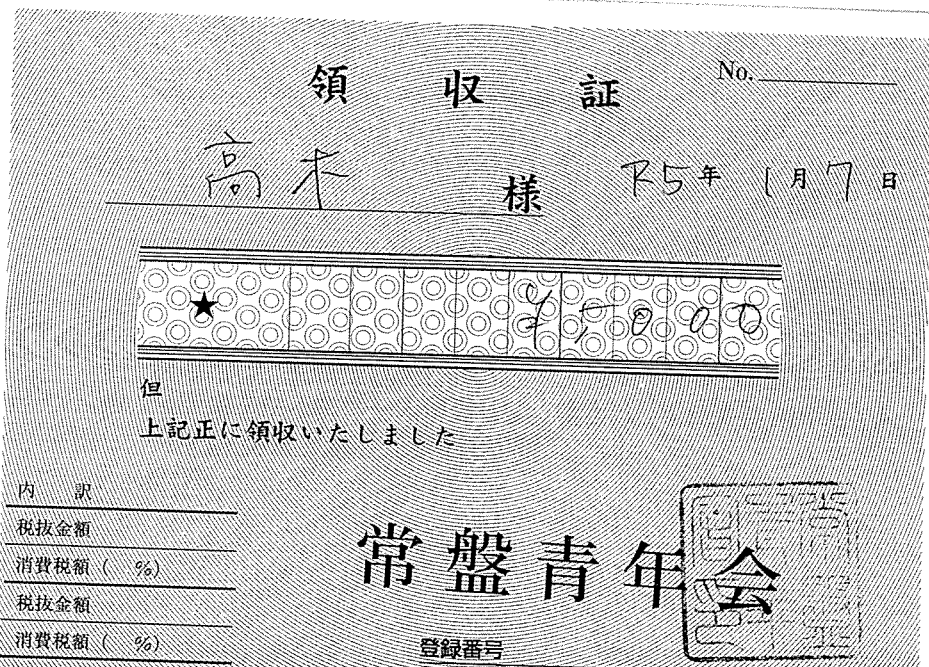 領収証 No.
高木 様 R5年 1月7日
★ ¥5000
但
上記正に領収いたしました
内訳
税抜金額
消費税額 ( %)
税抜金額
消費税額 ( %)
常盤青年会
登録番号